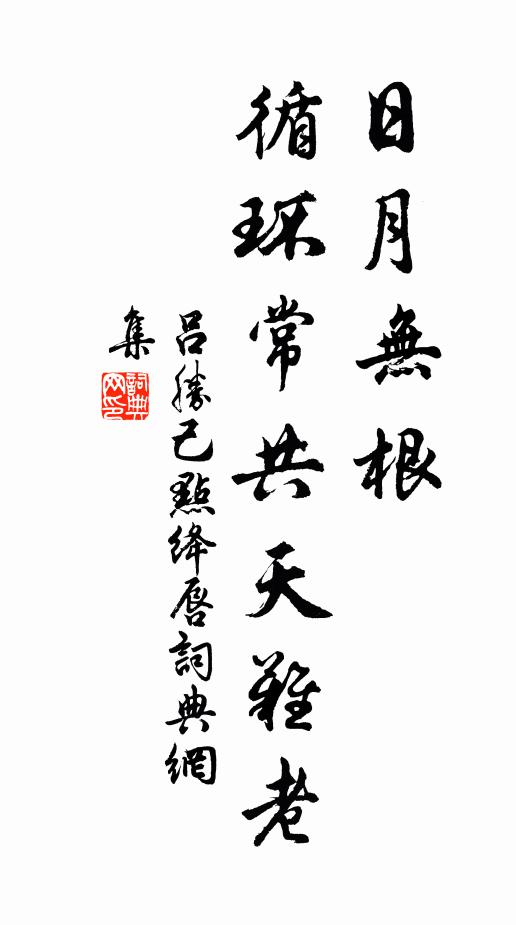 日月無根
循环常共天難老
呂勝己點绛唇詞典網
集
詞典
网印